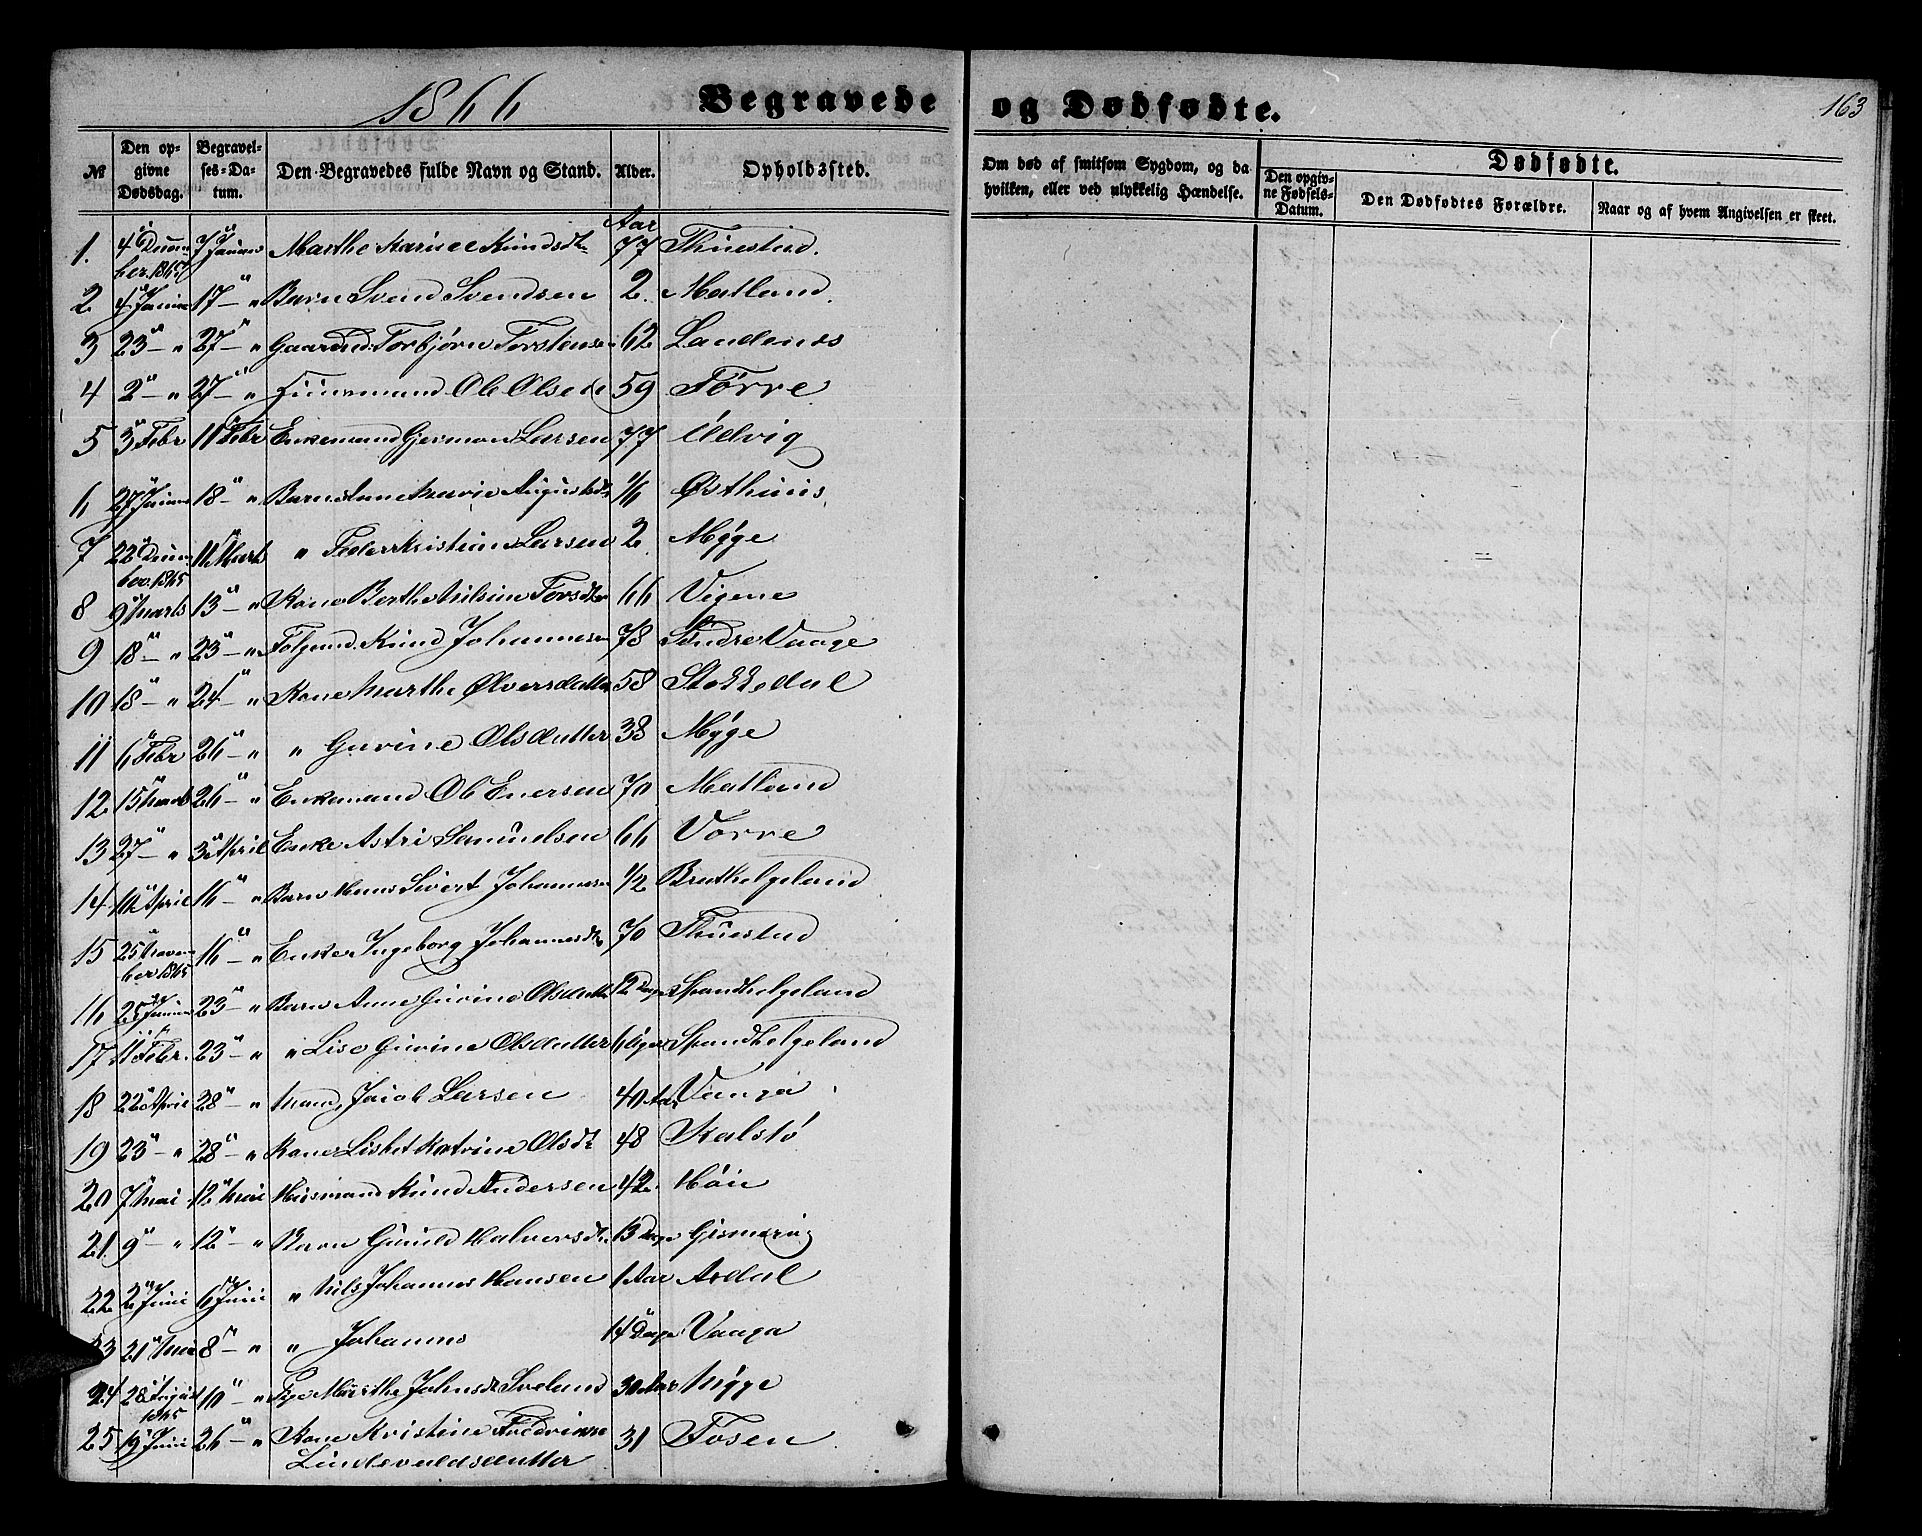 1866 Begravede og Dødfødte. 163
№ Den opgivne Dødsdag. Begravelses-Datum. Den Begravedes fulde Navn og Stand. Alder. Opholdssted. Om død af smitsom Sygdom, og da hvilken, eller ved ulykkelig Hændelse. Dødfødte.
Den opgivne Fødsels-Datum. Den Dødfødtes Forældre. Naar og af hvem Angivelsen er skeet.
Aar
1. 4 December 1865 7 Januar Marthe Karine Knudsdtr 77 Thuestad.
2 4 Januar 17 - " Barn Svend Svendsen 2. Matland.
3 23 - " 27 - " Gaardmd. Torbjørn Torstensen 62 Landenes
4 2 - " 27 - " Huusmand Ole Olsen 59 Førre
5 3 Febr 11 Febr Enkemand Gjermon Larsen 77 Udvig
6 27 Januar 18 - " Barn Ane Marie Augustsdtr 1/6 Østhuus.
7 22 December 1865 11 Marts " Peder Kristian Larsen 2. Møge
8 9 Marts 13 - " Kone Berthe Nilsine Torsdtr 66 Vigene
9 18 - " 23 - " Følgemd. Knud Johannesen 78 Søndre Vaage
10 18 - " 24 - " Kone Marthe Ølversdatter 58 Stokkedal
11 6 Febr 26 - " " Gurine Olsdatter 38 Møge
12 15 Marts 26 - " Enkemand Ole Enersen 70 Matland
13 27 - " 3 April Enke Astri Samuelsen 66 Vorre
14 10 April 16 - " Barn Hans Sivert Johannesen 1/2 Brathelgeland
15 25 November 1865 16 - " Enke Ingeborg Johannesdtr 70 Thuestad
16 25 Januar 23 - " Barn Anne Gurine Olsdatter 12 Dage Spandhelgeland
17 11 Febr. 23 - " " Lise Gurine Olsdatter 6 Uger Spandhelgeland
18 22 April 28 - " Mand Jacob Larsen 40 Aar Vaaga
19 23 - " 28 - " Kone Lisbet Katrine Olsdt 48 Kalstø
20 7 Mai 12 Mai Husmand Knud Andersen 42 Høie
21. 9 - " 12 - " Barn Gunild Halversdtr 13 Dage Gismervig
22 2 Juni 6 Juni " Nils Johannes Hansen 1 Aar Ardal
23 21 Mai 8 - " " Johannes 14 Dage Vaaga
24 28 August 1865 10 - " Pige Marthe Johnsdt Sveland 30 Aar Møge
25 19 Juni 26 - " Kone Kristine Fredrikke 31 Fosen
Lindevaldsdatter